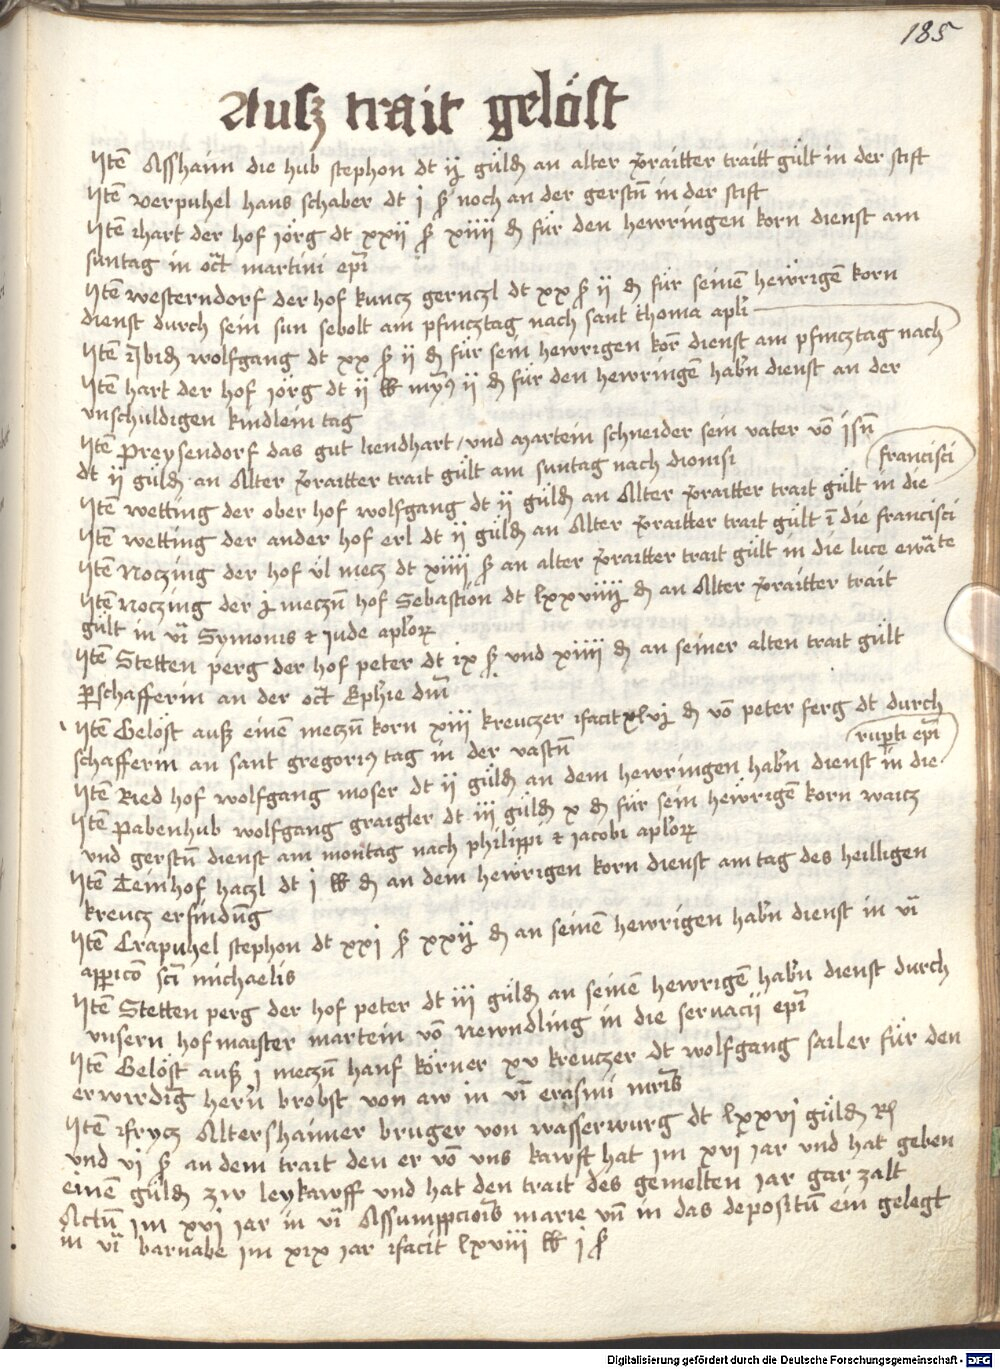 185
Ausz trait gelöst
Jtē Asshann die hub stephon dt ij güldn an alter praitter traitt gült in der stift
Jtē verpuhel hans schaber dt j ß noch an der gerstn in der stift
Jtē rhart der hof jörg dt xxij ß xiiij d für den hewringen korn dienst am
suntag in oct martini epi
Jtē westerndorf der hof kuncz gernczl dt xx ß ij d für seinē hewrigē korn
dienst durch sein sun sebolt am pfincztag nach sant thoma apli
Jtē ibidn wolfgang dt xx ß ij d für sein hewrigen korn dienst am pfincztag nach
Jtē hart der hof jörg dt ij lb ij d für den hewringē habn dienst an der
vnschuldigen kindlein tag
Jtē Preysendorf das gut liendhart / und martein schneider sein vater vō isn
dt ij güldn an Alter praitter trait gült am suntag nach dionisi
francisci
Jtē wetting der ober hof wolfgang dt ij güldn an Alter praitter trait gült in die
Jtē wetting der ander hof erl dt ij güldn an Alter praitter trait gült ī die francisci
Jtē Noczing der hof ül mecz dt xiiij ß an alter praitter trait gült in die luce ewāte
Jtē Noczing der j meczn hof Sebastion dt lxxviiij d an Alter praitter trait
gült in vi Symonis & jude aplor
Jtē Stetten perg der hof peter dt ix ß vnd xiiij d an seiner alten trait gült
pschafferin an der oct Ephie dni
Jtē Gelöst ausz einē meczn korn xiii kreuczer ifacit xlvj d vō peter ferg dt durch
schafferin an sant gregorius tag in der vastn
ruperti epi
Jtē Ried hof wolfgang moser dt ij güldn an dem hewringen habn dienst in die
Jtē Pabenhub wolfgang graigler dt iii güldn x d für sein hewrigē korn waicz
vnd gerstn dienst am montag nach philippi & jacobi aplor
Jtē Teinhof haczl dt j lb d an dem hewrigen korn dienst am tag des heilligen
kreucz erfindūg
Jtē Crapuhel stephon dt xxi ß xxij d an seinē hewrigen habn dienst in vi
appicō sci michaelis
Jtē Stetten perg der hof peter dt iii güldn an seinē hewrigē habn dienst durch
vnsern hofmaister martein vō Newndling in die servacij epi
Jtē Gelöst ausz j meczn hanf körner xv kreuczer dt wolfgang sailer für den
erwirdig hern brobst von aw in vi erasmi mris
Jtē ifrycz Altershaimer bruger von wasserwurg dt lxxvi güldn R
vnd vi ß an dem trait den er vō vns kawft hat im xvi jar vnd hat geben
einē güldn zw leykawff vnd hat den trait des gemelten jar gar zalt
Actū im xvi jar in vi Assumppcionis marie vn in das depositū ein gelegt
in vi barnabe im xix jar ifacit lxviii lb j ß
Digitalisierung gefördert durch die Deutsche Forschungsgemeinschaft - DFG